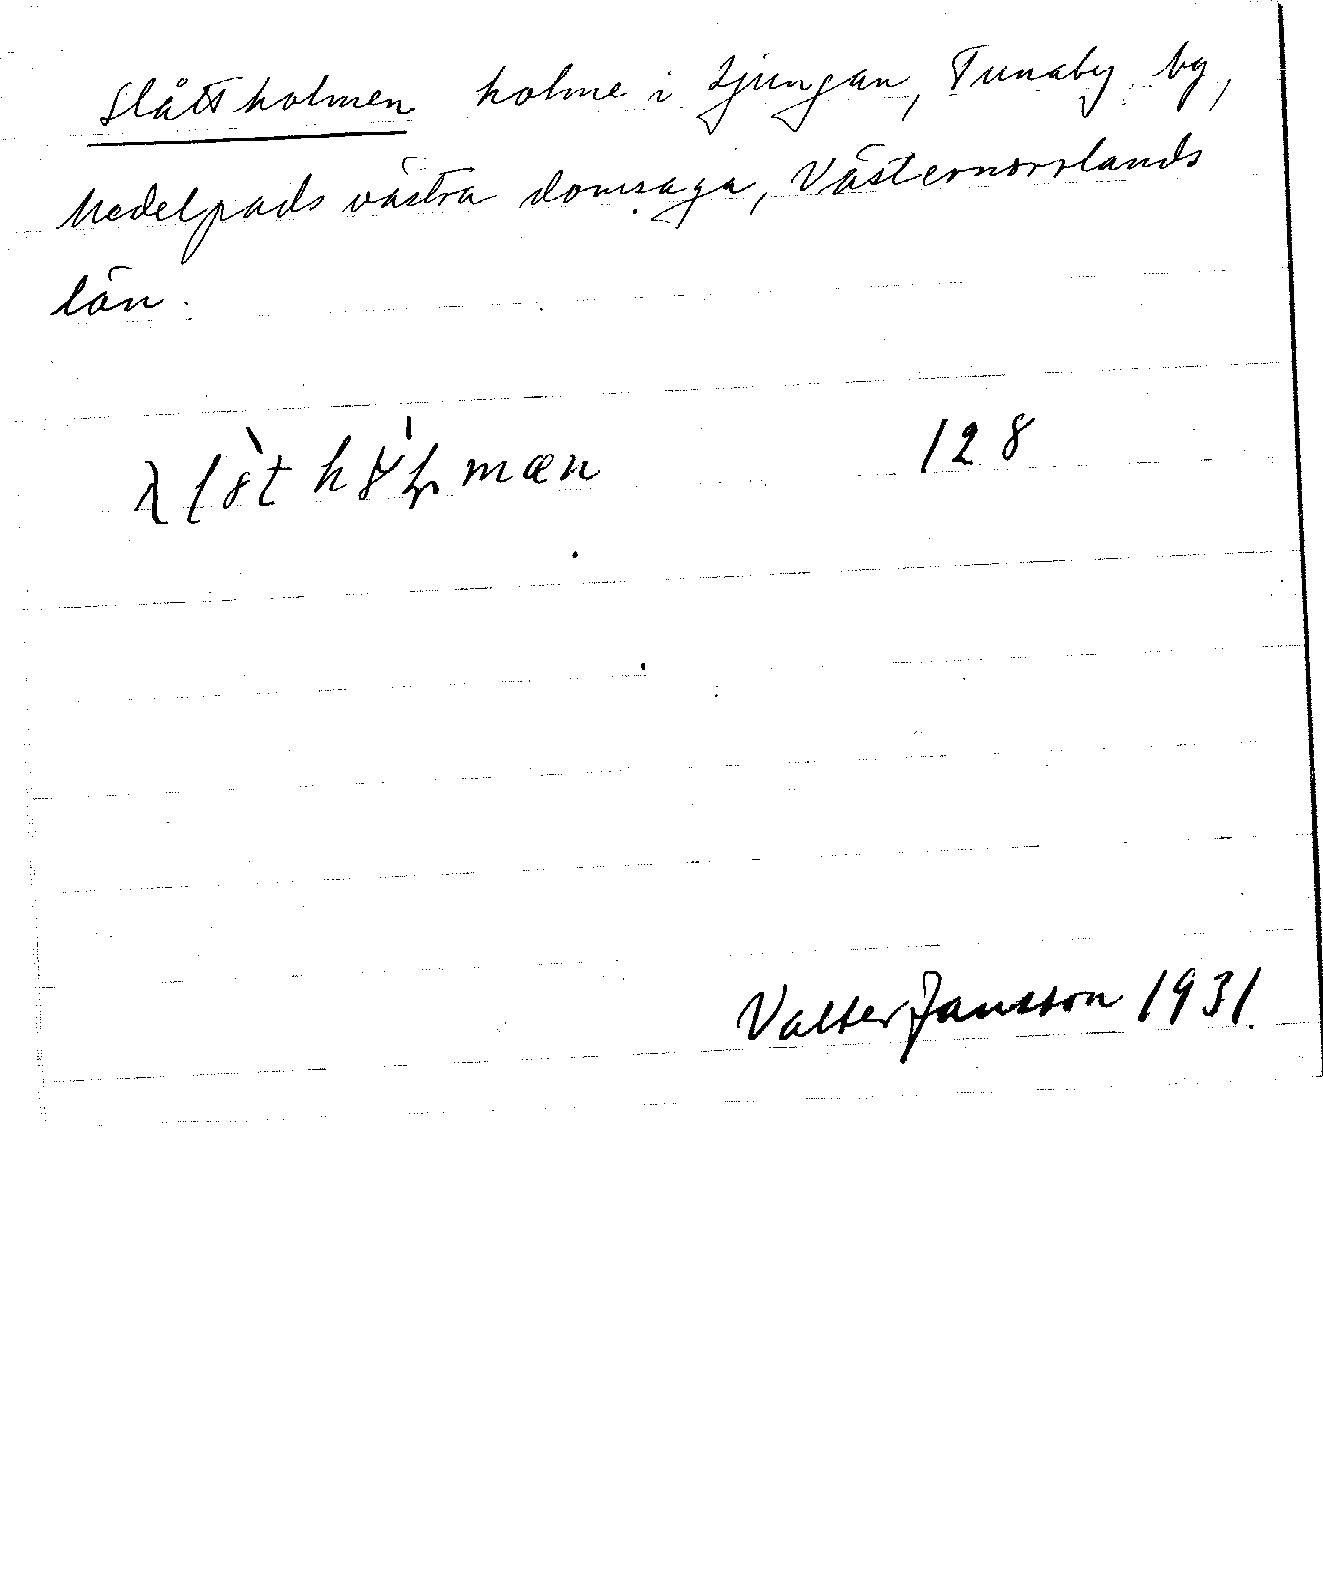 Slåttholmen holme i Ljungan, Tunaby by,
Medelpads västra domsaga, Västernorrlands
län.
128
Valter Jansson 1931.